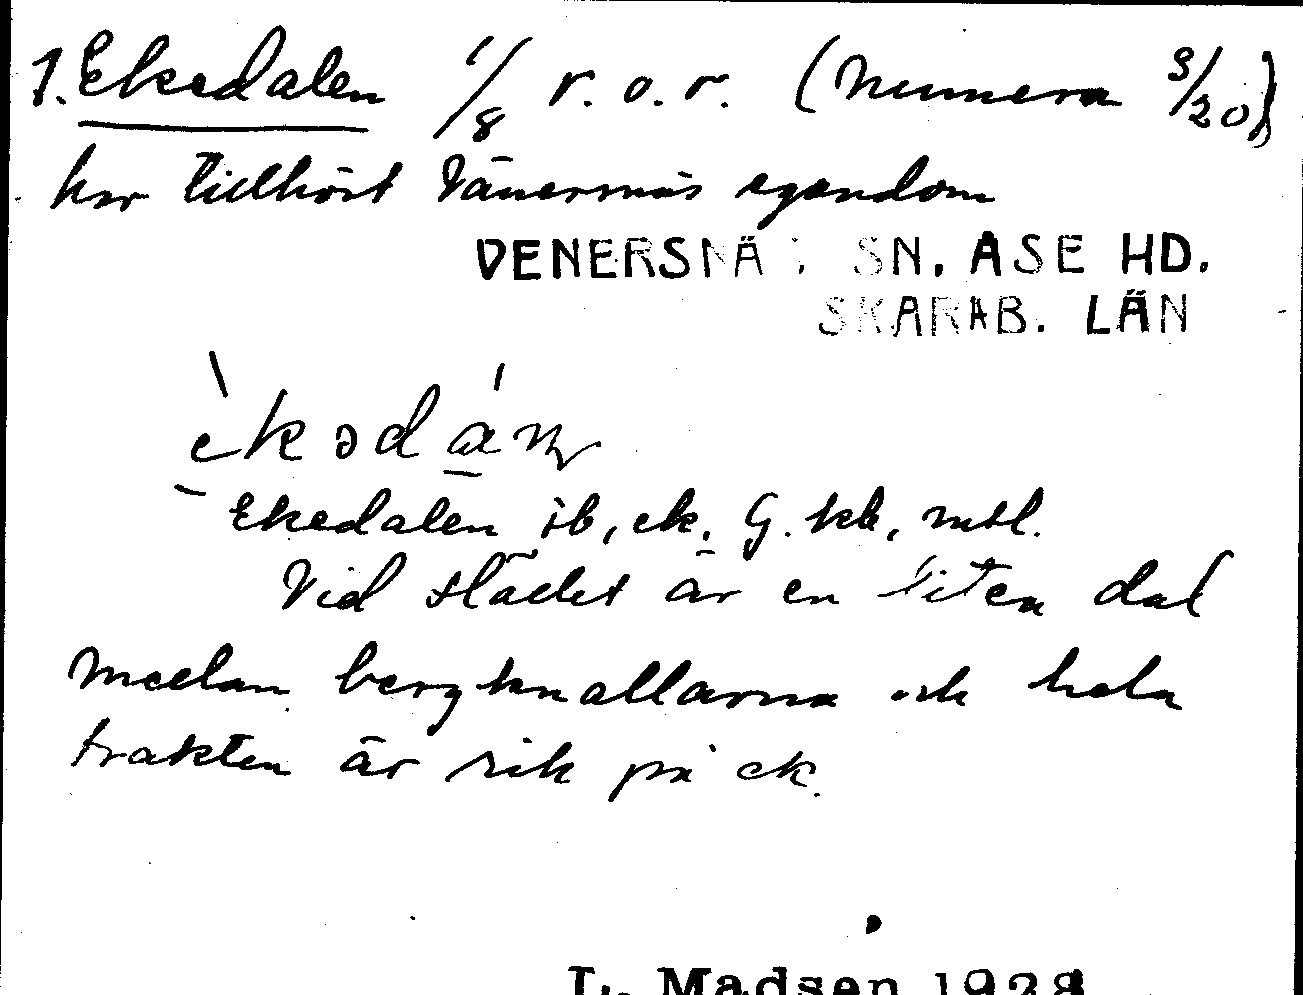 1. Ekedalen 1/8 r. o. r. (Numera 3/20)
har tillhört Vänersnäs egendom
VENERSNÄ SN. ASE HD.
SKARAB. LÄN
Ekedalen jb, ek. G. kb, mtl.
Vid stället är en liten dal
mellan bergknallarna och hela
trakten är rik på ek.
L. Madsen 1928